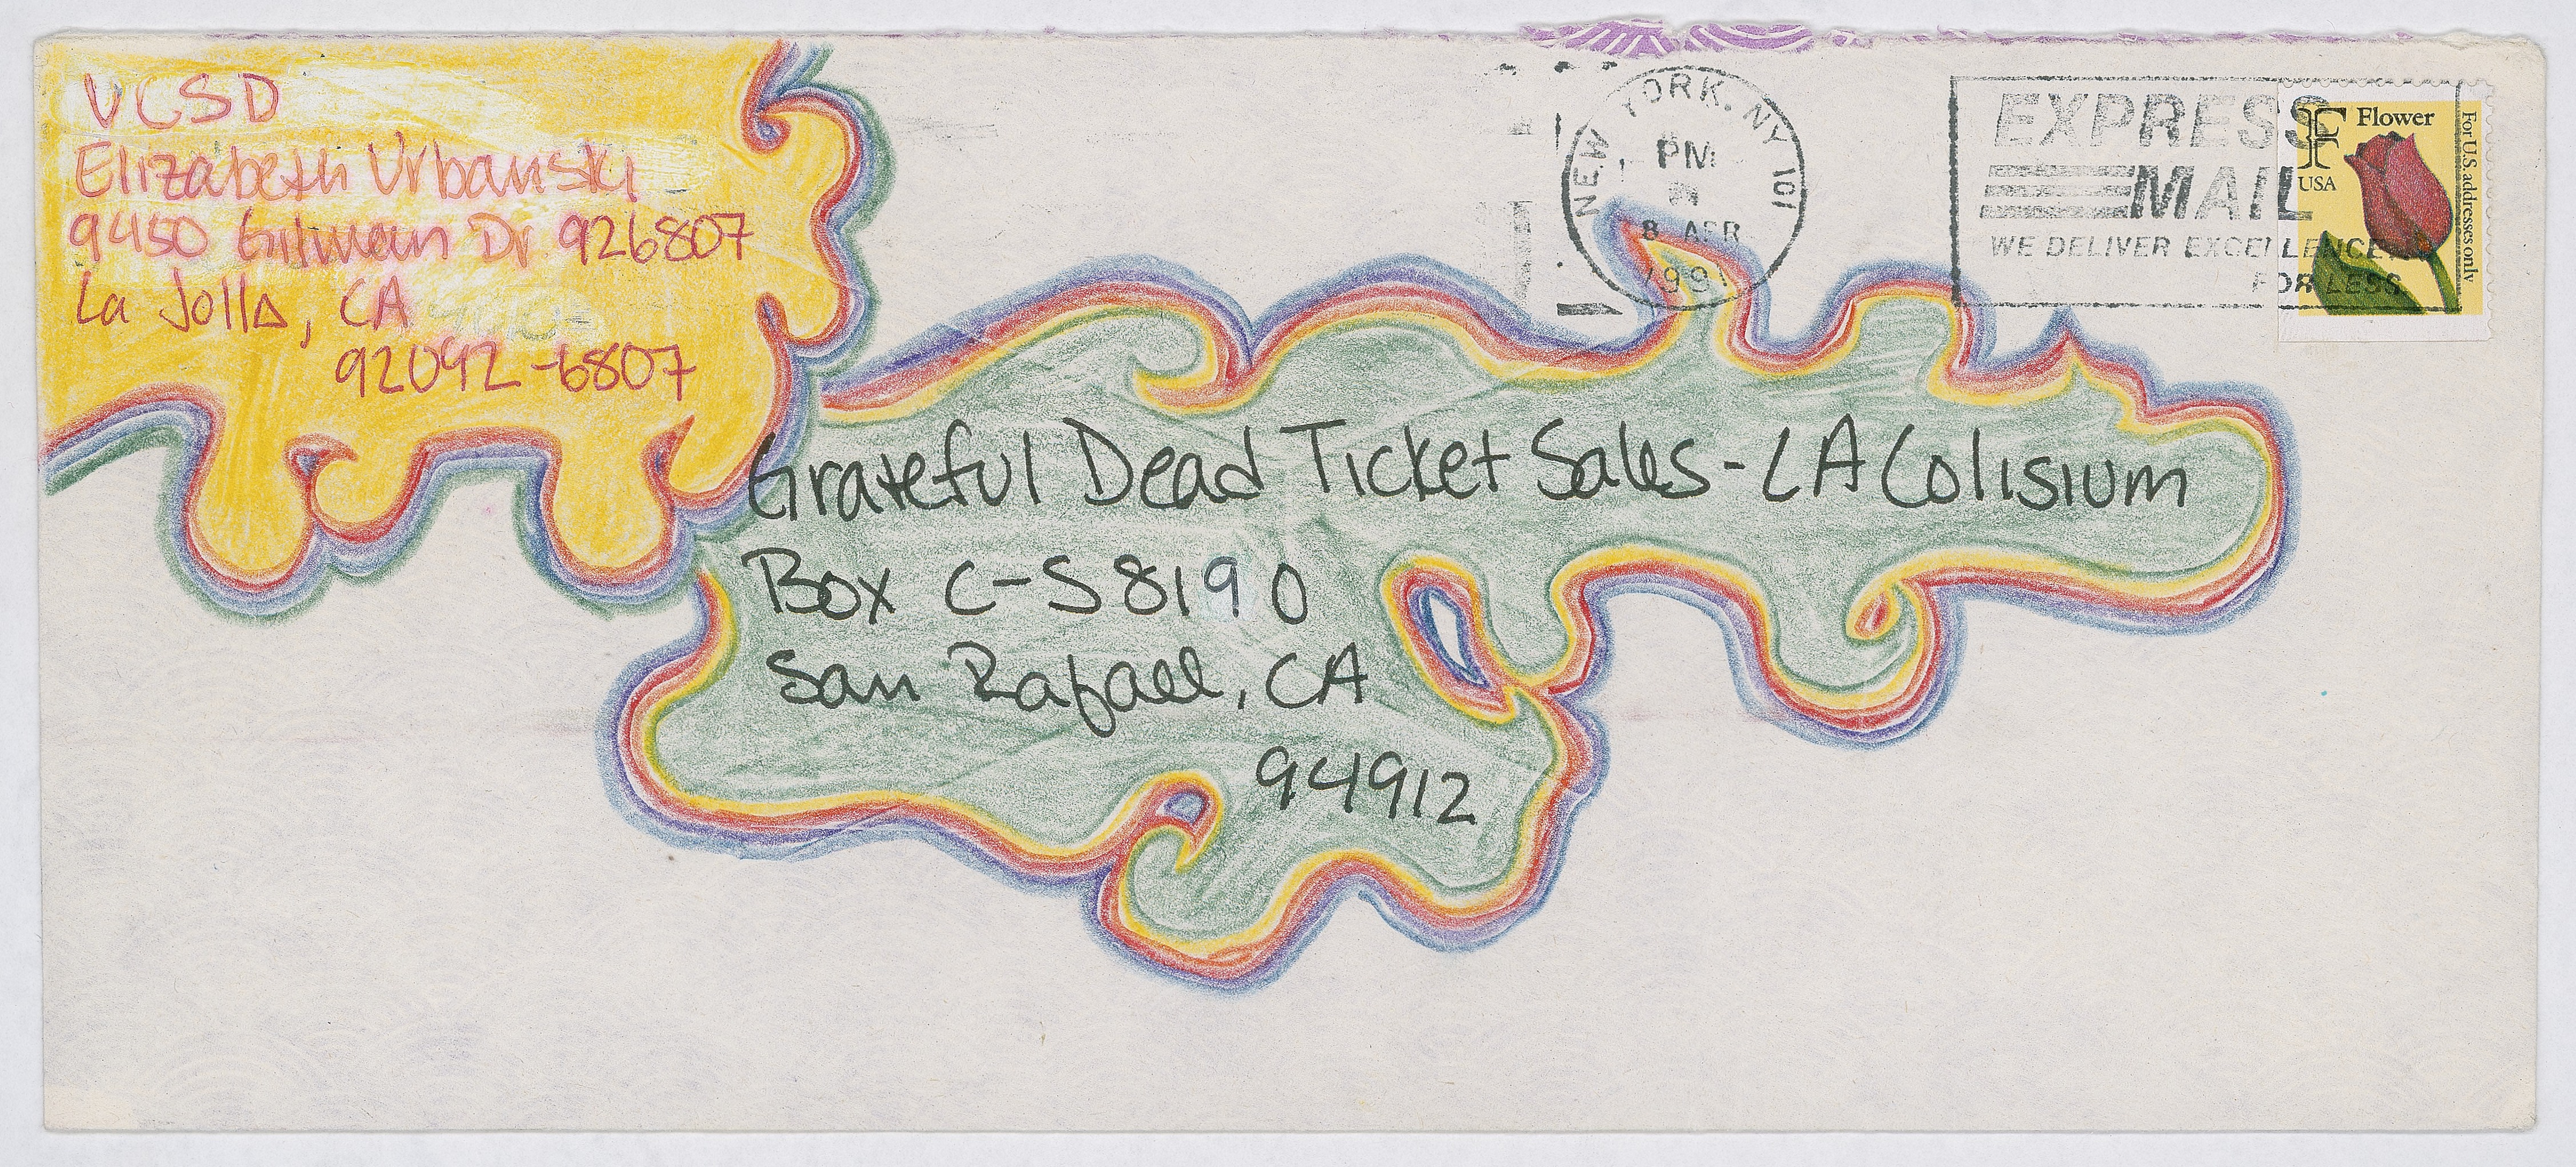 UCSD
Elizabeth Urbanski
9450 Gilman Dr 926807
La Jolla, CA
92092-6807
NEW YORK, NY 101
PM
8 APR
1991
EXPRESS
MAIL
WE DELIVER EXCELLENCE
FOR LESS
F Flower
USA
For U.S. addresses only
Grateful Dead Ticket Sales - LA Colisium
Box C-S 8190
San Rafael, CA
94912